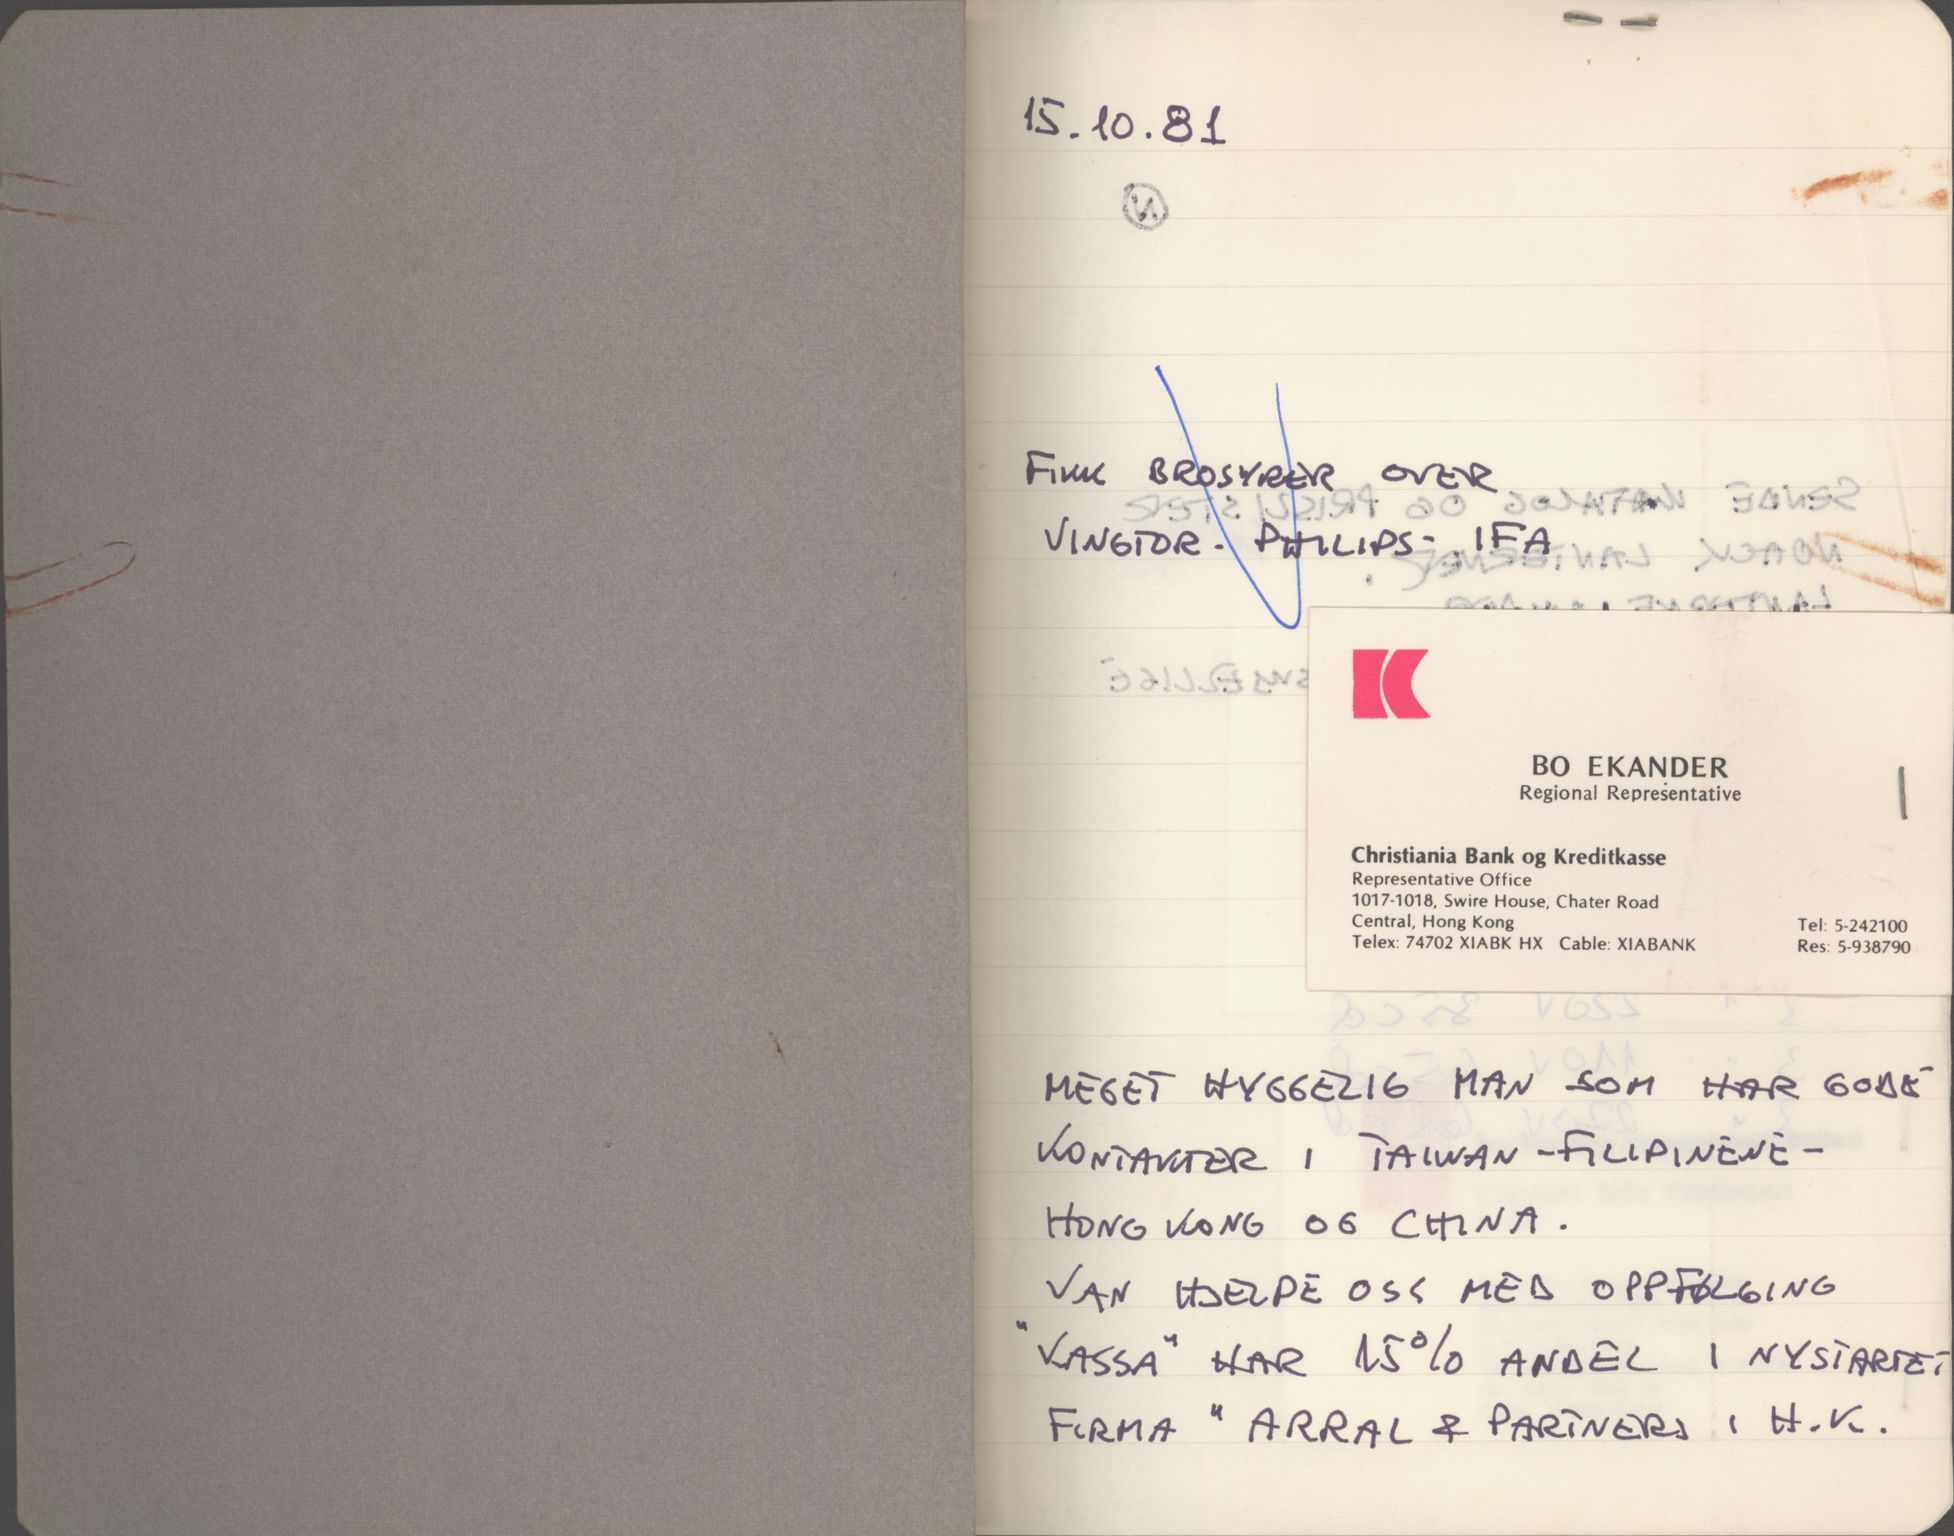 15.10.81
FIKK BROSYRER OVER
VINGTOR - PHILIPS - IFA
BO EKANDER
Regional Representative
Christiania Bank og Kreditkasse
Representative Office
1017-1018, Swire House, Chater Road
Central, Hong Kong
Telex: 74702 XIABK HX Cable: XIABANK
Tel: 5-242100
Res: 5-938790
MEGET HYGGELIG MAN SOM HAR GODE
KONTAKTER I TAIWAN - FILIPINENE -
HONG KONG OG CHINA.
KAN HJELPE OSS MED OPPFØLGING
"KASSA" HAR 15% ANDEL I NYSTARTET
FIRMA " ARRAL & PARTNERS I H.K.